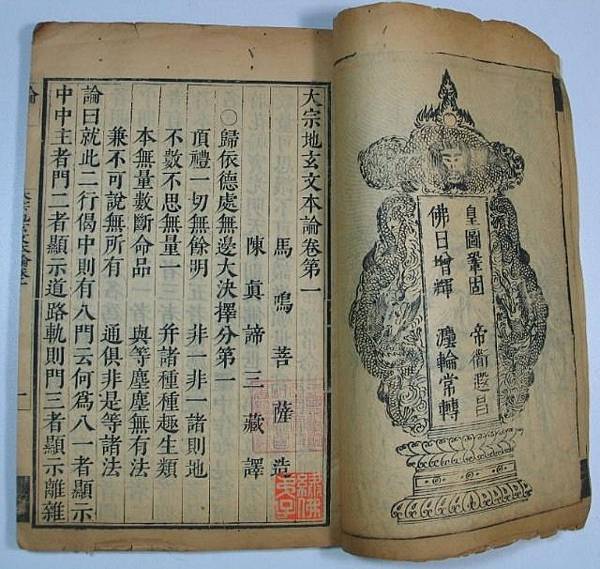 皇圖鞏固 帝衟遐昌
佛日增輝 灋輪常轉
大宗地玄文本論卷第一
馬鳴菩薩造
陳眞諦三藏譯
○歸依德處無邊大決擇分第一
頂禮一切無餘明 非一非一諸則地
不數不思無量一 幷諸種種趣生類
本無量數斷命品 與等塵塵無有法
兼不可說無所有 通俱非是等諸法
論曰就此二行偈中則有八門云何爲八一者顯示
中中主者門二者顯示道路軌則門三者顯示離雜
論
一